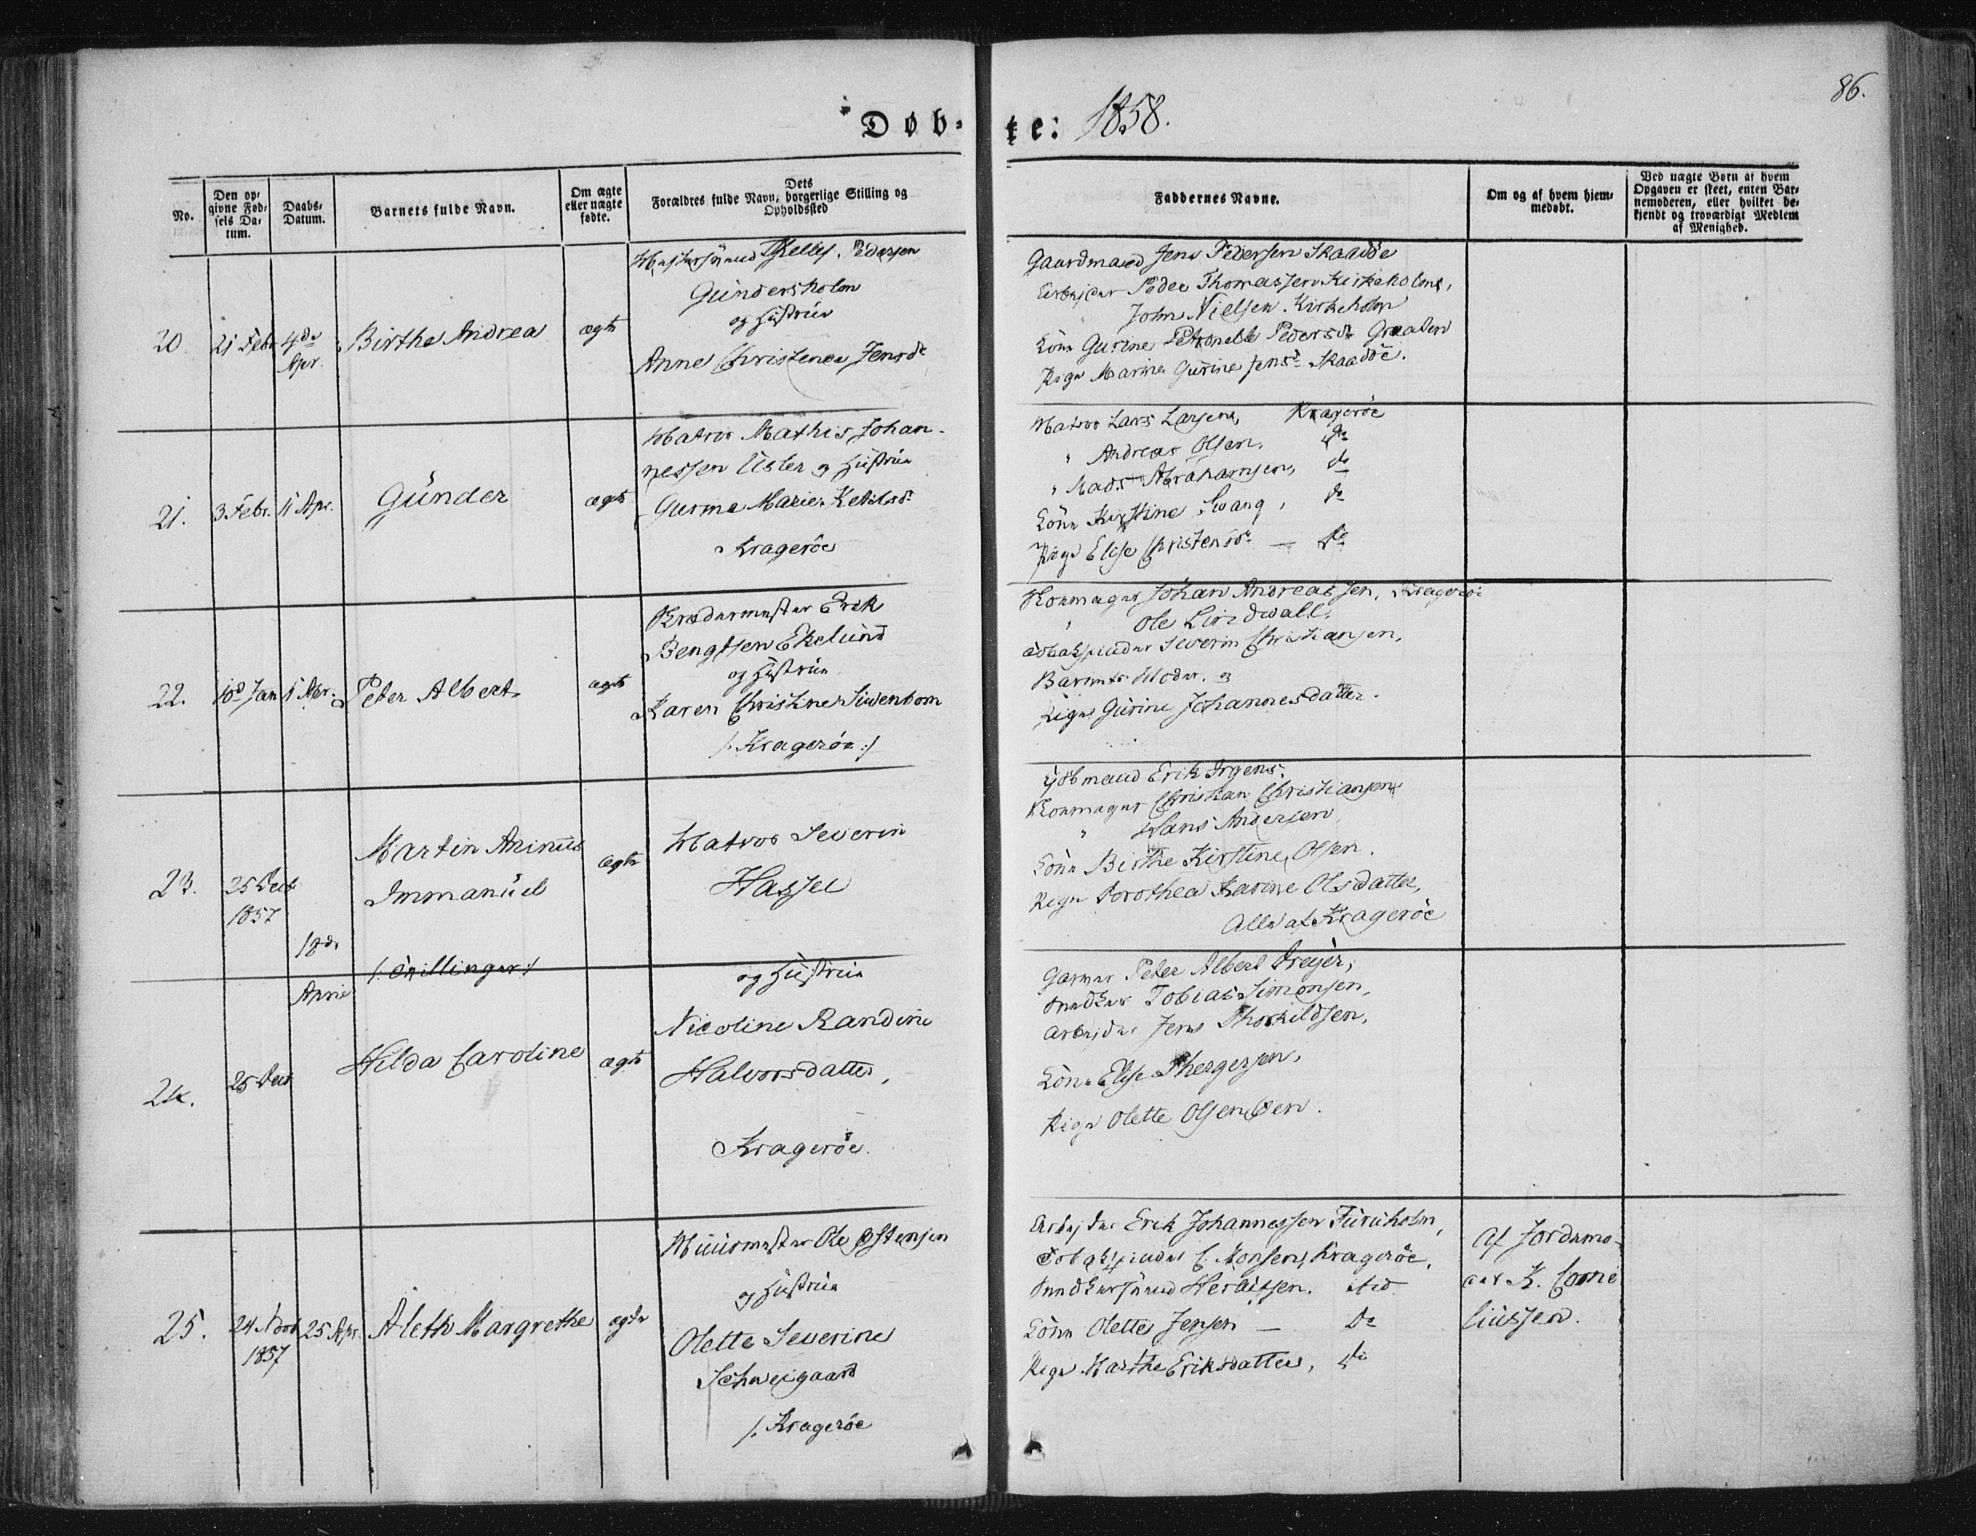 86.
Døb-te: 1858.
No.
Den op-
givne Fød-
sels Da-
tum.
Daabs-
Datum.
Barnets fulde Navn.
Om ægte
eller uægte
fødte.
Dets
Forældres fulde Navn, borgerlige Stilling og
Opholdssted
Faddernes Navne.
Om og af hvem hjem-
medøbt.
Ved uægte Børn at hvem
Opgaven er skeet, enten Bar-
nemoderen, eller hvilket be-
kjendt og troværdigt Medlem
af Menighed.
20.
21 Febr
4de
Apr.
Birthe Andrea
ægte
Pedersen
Gundersholm
og Hustrue
Anne Christence Jensdr
Gaardmand Jens Pedersen Skaadøe
Arbejder Peder Thomassen Kirkeholm,
John Nielsen Kirkeholm
Kone Gurine Petronelle Pedersdr Graaten
Pige Marine Gurine Jensd. Skaadöe.
21.
3 Febr.
11 Apr.
Gunder
ægte
Matros Mathis Johan-
nessen Uster og Hustrue
Gurine Marie Ketilsdr
Kragerøe
Matros Lars Larsen, Kragerøe
" Andreas Olsen, do
" Mads Abrahamsen, do
Kone Kirstine Svang, do
Pige Elise Christensdr. — do
22.
10d Jan
Peter Albert
ægte
Erik
Bengtsen Ekelund
og Hustrue
Karen Christine Svenbom
/: Kragerøe :/
Johan Andreassen, Kragerøe
" Ole Lindwall,
Severin Christiansen,
Barnets Moder, og
Pige Gurine Johannesdatter.
23.
25 Decb
1857
Martin Arinius
Immanuel
ægte
Matros Severin
Hassel
Erik Irgens.
Christian Christiansen
" Hans Andersen
Kone Birthe Kirstine Olsen.
Pige Dorothea Karine Olsdatter,
Alle af Kragerøe
18de
April
/: Tvillinger :/
og Hustrue
24.
25 Decb
Hilda Caroline
ægte
Nicoline Randine
Halvorsdatter,
Kragerøe.
Garver Peter Albert Dreyer,
Snedker Tobias Simonsen,
Arbejder Jens Thorkildsen,
Kone Elise Thergersen,
Pige Olette Olsen Øen.
25.
24 Novb
1857
25 Apr.
Aleth Margrethe
ægte
Muurmester Ole Østensen
og Hustrue
Olette Severine
Schweigaard
/: Kragerøe
Arbejder Erik Johannessen Furuholm,
C. Monsen, Kragerøe,
Kone Olette Jensen — do
Pige Marthe Eriksdatter, do
Af Jordemo-
der K. Corne
liussen.